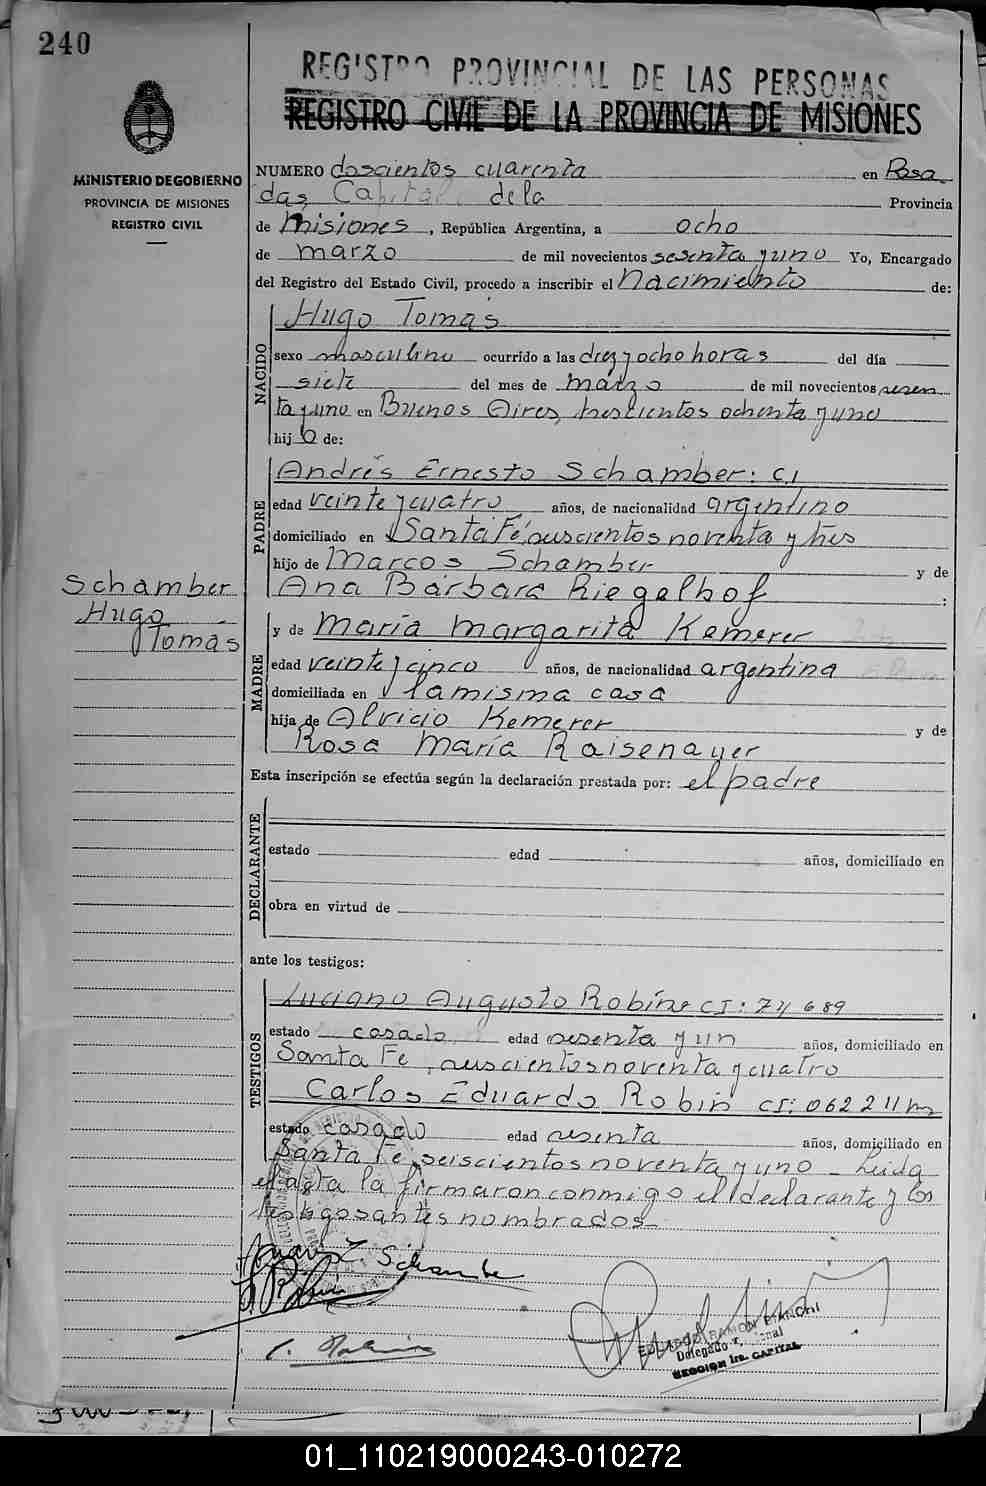 240
REGISTRO PROVINCIAL DE LAS PERSONAS
REGISTRO CIVIL DE LA PROVINCIA DE MISIONES
MINISTERIO DE GOBIERNO
PROVINCIA DE MISIONES
REGISTRO CIVIL
NUMERO doscientos cuarenta en Posa
das, Capital de la Provincia
de Misiones, República Argentina, a ocho
de marzo de mil novecientos sesenta y uno Yo, Encargado
del Registro del Estado Civil, procedo a inscribir el Nacimiento de:
NACIDO
Hugo Tomás
sexo masculino ocurrido a las diez y ocho horas del día
siete del mes de marzo de mil novecientos sesen
ta y uno en Buenos Aires, trescientos ochenta y uno
hijo de:
PADRE
Andrés Ernesto Schamber: C.I
edad veinte y cuatro años, de nacionalidad argentino
domiciliado en Santa Fé, seiscientos noventa y tres
hijo de Marcos Schamber y de
Ana Bárbara Riegelhof :
Schamber
Hugo
Tomás
MADRE
y de María Margarita Kemerer
edad veinte y cinco años, de nacionalidad argentina
domiciliada en la misma casa
hija de Alvicio Kemerer y de
Rosa María Raisenauer
Esta inscripción se efectúa según la declaración prestada por: el padre
DECLARANTE
estado edad años, domiciliado en
obra en virtud de
ante los testigos:
TESTIGOS
Luciano Augusto Robine CI: 74689
estado casado edad sesenta y un años, domiciliado en
Santa Fe, seiscientos noventa y cuatro
Carlos Eduardo Robin CI: 062211
estado casado edad sesenta años, domiciliado en
Santa Fe, seiscientos noventa y uno - Leida
el acta la firmaron conmigo el declarante y los
testigos antes nombrados.
Schamber
EDUARDO RAMON BIANCHI
Delegado
SECCION 1ra. CAPITAL
01_110219000243-010272